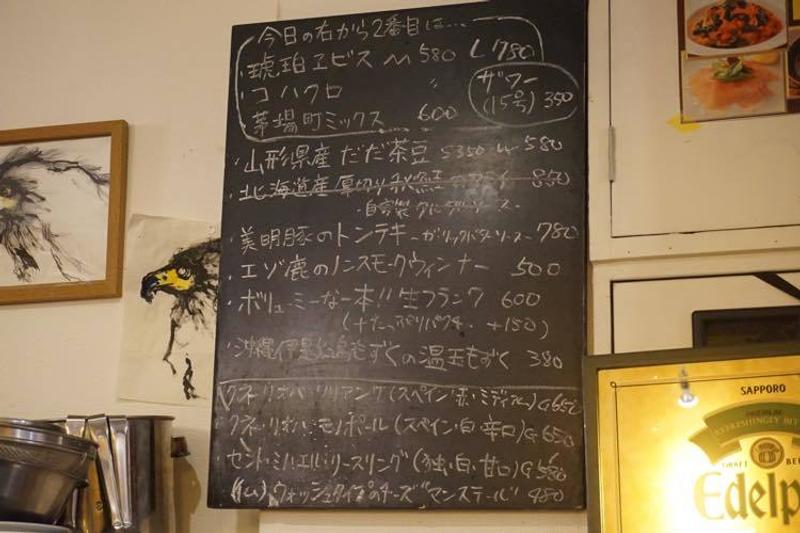 今日の右から2番目は...
・琥珀ヱビス M 580 L 780
・コハクロ 〃
・茅場町ミックス 600
サワー
(15号) 350
・山形県産 だだ茶豆 S350 W 580
・北海道産 厚切り秋鮭のフライ
・美明豚のトンテキ ーガーリックバターソースー 780
・エゾ鹿のノンスモークウィンナー 500
・ボリューミーな一本!!生フランク 600
(+たっぷりパクチー +150)
・沖縄伊是名島もずくの温玉もずく 380
クネ・リオハ・クリアンサ(スペイン・赤・ミディアム)G650
クネ・リオハ・モノポール(スペイン・白・辛口)G650
セント・ミハエル・リースリング(独・白・甘口)G580
ウォッシュタイプのチーズ"マンステール" 480
SAPPORO
PREMIUM
REFRESHINGLY BIT
CRAFT BEE
Edelp